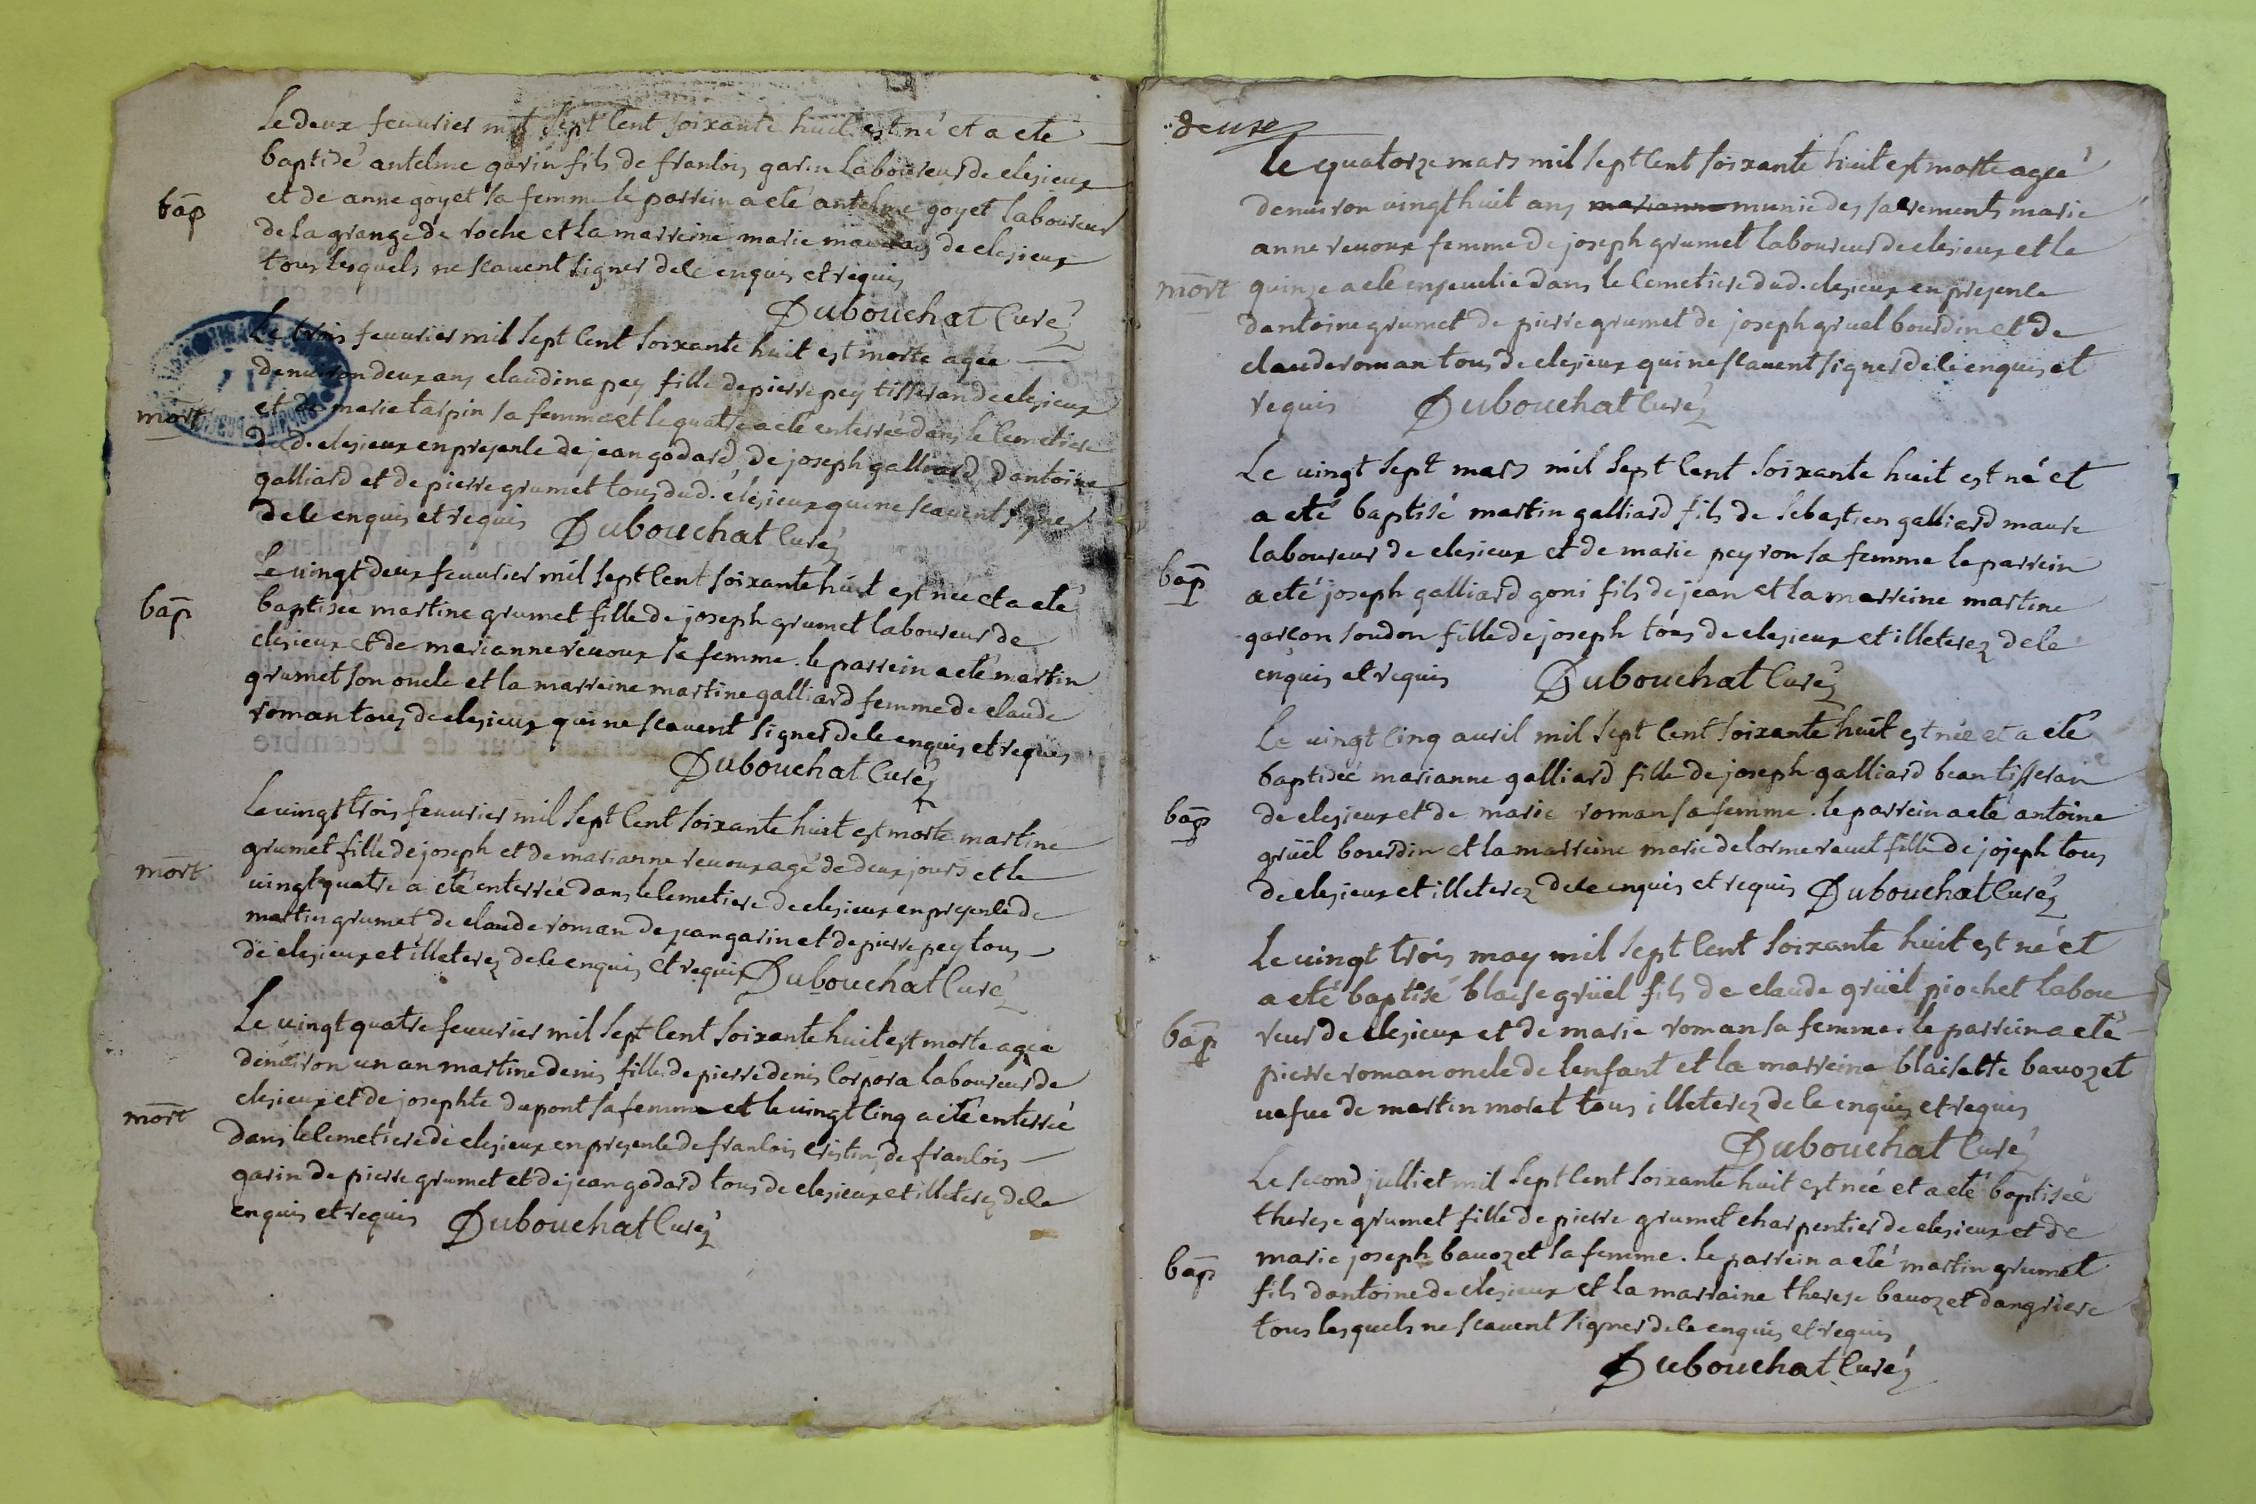 Le deux feuurier mil sept Cent soixante huit est né et a eté
baptisé antelme garin fils de francois garin Laboureur de clesieux
bap
et de anne goyet sa femme le parrein a eté antelme goyet laboureur
de la grange de roche et la marreine marie de clesieux
tous lesquels ne scauent signer de ce enquis et requis
Dubouchat Curé
Le trois feuurier mil sept Cent soixante huit est morte agée
denuiron deux ans claudina pey fille de pierre pey tisseran de clesieux
mort
et de marie tarpin sa femme et le quatre a eté enterrée dans le Cemetiere
dud. clesieux en presence de jean godard, de joseph galliard dantoine
galliard et de pierre grumet tous dud. clesieux qui ne scauent signer
de ce enquis et requis Dubouchat Curé
Le uingt deux feuurier mil sept Cent soixante huit est née et a eté
bap
baptisée martine grumet fille de joseph grumet laboureur de
clesieux et de marianne reuoux sa femme. le parrein a eté martin
grumet son oncle et la marreine martine galliard femme de claude
roman tous de clesieux qui ne scauent signer de ce enquis et requis
Dubouchat Curé
Le uingt trois feuurier mil sept Cent soixante huit est morte martine
grumet fille de joseph et de marianne reuoux agé de deux jours et le
mort
uingt quatre a eté enterrée dans le Cemetiere de clesieux en presence de
martin grumet de claude roman de jean garin et de pierre pey tous
de clesieux et illeterez de ce enquis et requis Dubouchat Curé
Le uingt quatre feuurier mil sept Cent soixante huit est morte agée
denuiron un an martine denis fille de pierre denis Corpora laboureur de
clesieux et de josephte dupont sa femme et le uingt Cinq a eté enterreé
mort
dans le Cemetiere de clesieux en presence de francois cristin de francois
garin de pierre grumet et de jean godard tous de clesieux et illeterez de ce
enquis et requis Dubouchat Curé
deuxe
Le quatorze mars mil sept Cent soixante huit est morte agée
denuiron uingt huit ans marianne munie des sacrements marie
anne reuoux femme de joseph grumet laboureur de clesieux et le
mort
quinze a eté enseuelie dans le Cemetiere dud. clesieux en presence
dantoine grumet de pierre grumet de joseph gruel bourdin et de
claude roman tous de clesieux qui ne scauent signer de ce enquis et
requis Dubouchat Curé
Le uingt sept mars mil sept Cent soixante huit est né et
a eté baptisé martin galliard fils de sebastien galliard mause
laboureur de clesieux et de marie peyron sa femme le parrein
bap
a eté joseph galliard goni fils de jean et la marreine martine
garcon soudon fille de joseph tous de clesieux et illeterez de ce
enquis et requis Dubouchat Curé
Le uingt Cinq auril mil sept Cent soixante huit est née et a eté
baptisée marianne galliard fille de joseph galliard bean tisseran
bap
de clesieux et de marie roman sa femme. le parrein a eté antoine
grüel bourdin et la marreine marie delorme fille de joseph tous
de clesieux et illeterez de ce enquis et requis Dubouchat Curé
Le uingt trois may mil sept Cent soixante huit est né et
a eté baptisé blaise grüel fils de claude grüel piochet labou
bap
reur de clesieux et de marie roman sa femme. le parrein a eté
pierre roman oncle de lenfant et la marreine blaisette bauozet
uefue de martin moret tous illeterez de ce enquis et requis
Dubouchat Curé
Le second julliet mil sept Cent soixante huit est née et a eté baptisée
therese grumet fille de pierre grumet charpentier de clesieux et de
bap
marie joseph bauozet sa femme. le parrein a eté martin grumet
fils dantoine de clesieux et la marraine therese bauozet dangriere
tous lesquels ne scauent signer de ce enquis et requis
Dubouchat Curé